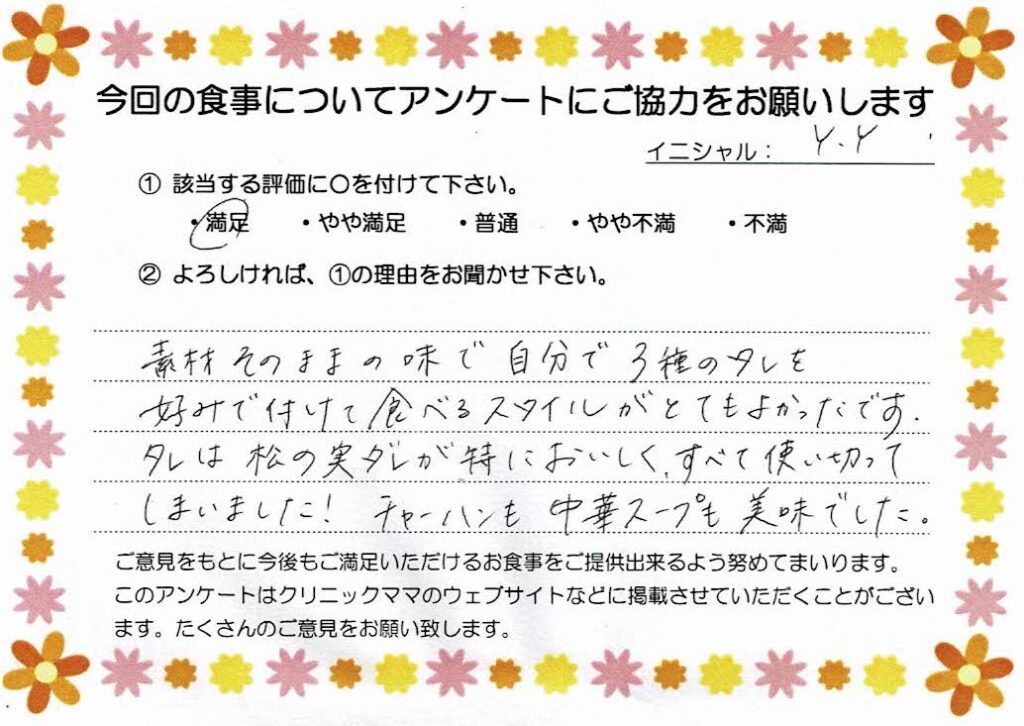 今回の食事についてアンケートにご協力をお願いします
イニシャル： Y.Y
① 該当する評価に〇を付けて下さい。
・満足 ・やや満足 ・普通 ・やや不満 ・不満
② よろしければ、①の理由をお聞かせ下さい。
素材そのままの味で自分で3種のタレを
好みで付けて食べるスタイルがとてもよかったです.
タレは松の実ダレが特においしく、すべて使い切って
しまいました! チャーハンも中華スープも美味でした。
ご意見をもとに今後もご満足いただけるお食事をご提供出来るよう努めてまいります。
このアンケートはクリニックママのウェブサイトなどに掲載させていただくことがござい
ます。たくさんのご意見をお願い致します。